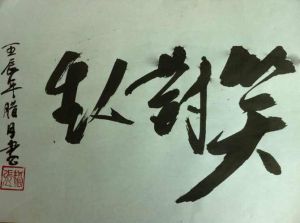 笑對人生
壬辰年腊月书